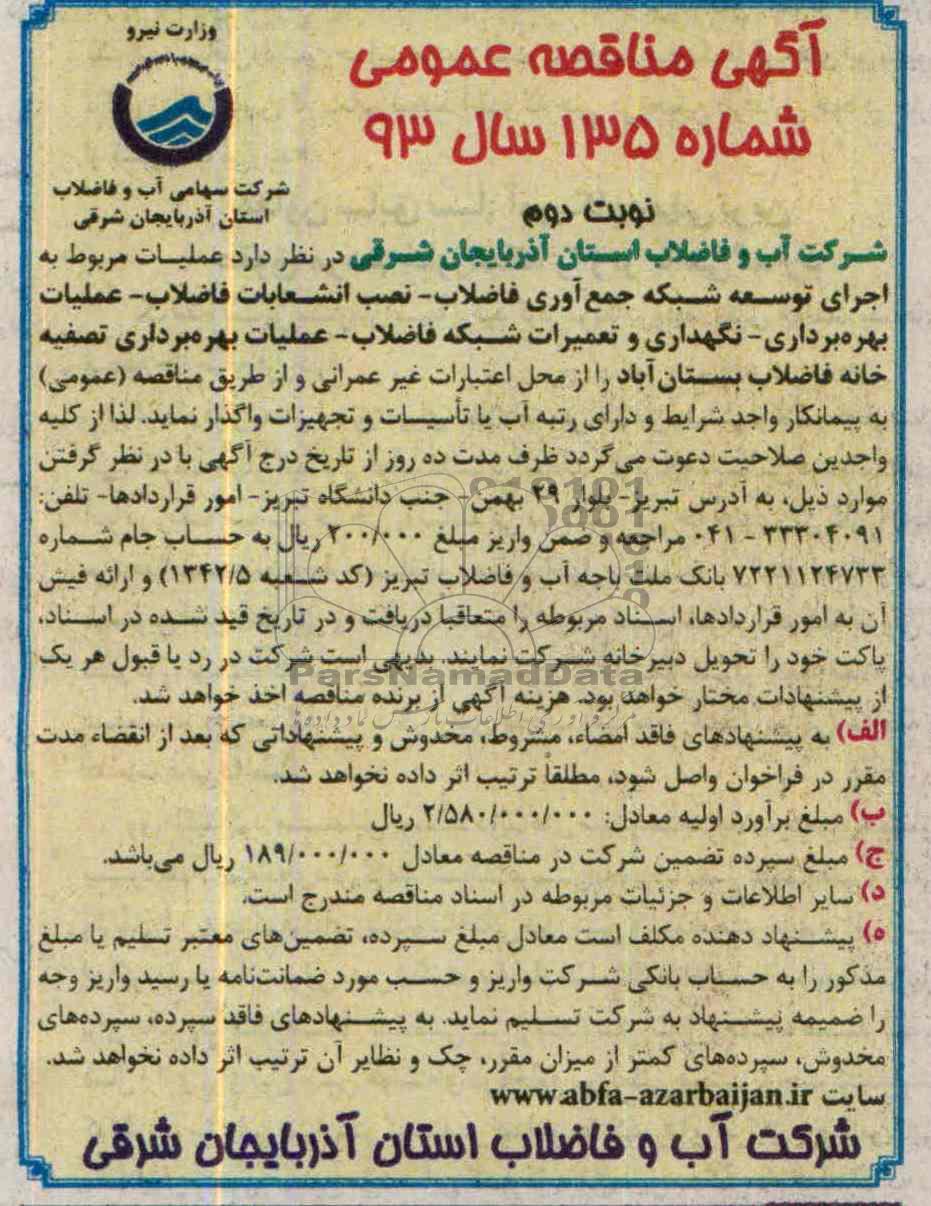 وزارت نیرو
شرکت سهامی آب و فاضلاب
استان آذربایجان شرقی
آگهی مناقصه عمومی
شماره ۱۳۵ سال ۹۳
نوبت دوم
شرکت آب و فاضلاب استان آذربایجان شرقی در نظر دارد عملیات مربوط به
اجرای توسعه شبکه جمع‌آوری فاضلاب- نصب انشعابات فاضلاب- عملیات
بهره‌برداری- نگهداری و تعمیرات شبکه فاضلاب- عملیات بهره‌برداری تصفیه
خانه فاضلاب بستان‌آباد را از محل اعتبارات غیر عمرانی و از طریق مناقصه (عمومی)
به پیمانکار واجد شرایط و دارای رتبه آب یا تأسیسات و تجهیزات واگذار نماید. لذا از کلیه
واجدین صلاحیت دعوت می‌گردد ظرف مدت ده روز از تاریخ درج آگهی با در نظر گرفتن
موارد ذیل، به آدرس تبریز- بلوار ۲۹ بهمن- جنب دانشگاه تبریز- امور قراردادها- تلفن:
۳۳۳۰۴۰۹۱ - ۰۴۱ مراجعه و ضمن واریز مبلغ ۲۰۰/۰۰۰ ریال به حساب جام شماره
۷۲۲۱۱۲۴۷۳۳ بانک ملت باجه آب و فاضلاب تبریز (کد شعبه ۱۳۴۲/۵) و ارائه فیش
آن به امور قراردادها، اسناد مربوطه را متعاقبا دریافت و در تاریخ قید شده در اسناد،
پاکت خود را تحویل دبیرخانه شرکت نمایند. بدیهی است شرکت در رد یا قبول هر یک
از پیشنهادات مختار خواهد بود. هزینه آگهی از برنده مناقصه اخذ خواهد شد.
الف) به پیشنهادهای فاقد امضاء، مشروط، مخدوش و پیشنهاداتی که بعد از انقضاء مدت
مقرر در فراخوان واصل شود، مطلقاً ترتیب اثر داده نخواهد شد.
ب) مبلغ برآورد اولیه معادل: ۲/۵۸۰/۰۰۰/۰۰۰ ریال
ج) مبلغ سپرده تضمین شرکت در مناقصه معادل ۱۸۹/۰۰۰/۰۰۰ ریال می‌باشد.
د) سایر اطلاعات و جزئیات مربوطه در اسناد مناقصه مندرج است.
ه) پیشنهاد دهنده مکلف است معادل مبلغ سپرده، تضمین‌های معتبر تسلیم یا مبلغ
مذکور را به حساب بانکی شرکت واریز و حسب مورد ضمانت‌نامه یا رسید واریز وجه
را ضمیمه پیشنهاد به شرکت تسلیم نماید. به پیشنهادهای فاقد سپرده، سپرده‌های
مخدوش، سپرده‌های کمتر از میزان مقرر، چک و نظایر آن ترتیب اثر داده نخواهد شد.
سایت www.abfa-azarbaijan.ir
شرکت آب و فاضلاب استان آذربایجان شرقی
ParsNamadData